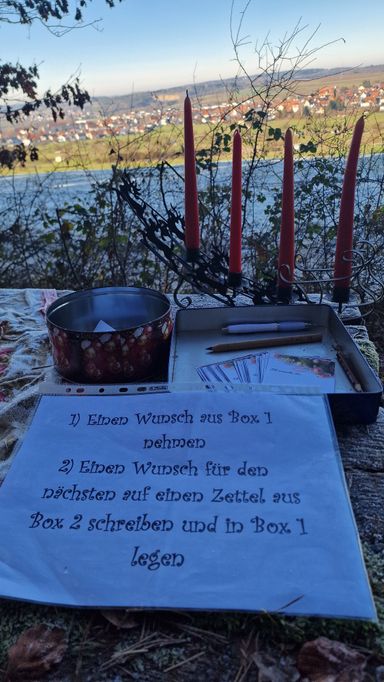 1) Einen Wunsch aus Box 1
nehmen
2) Einen Wunsch für den
nächsten auf einen Zettel aus
Box 2 schreiben und in Box 1
legen